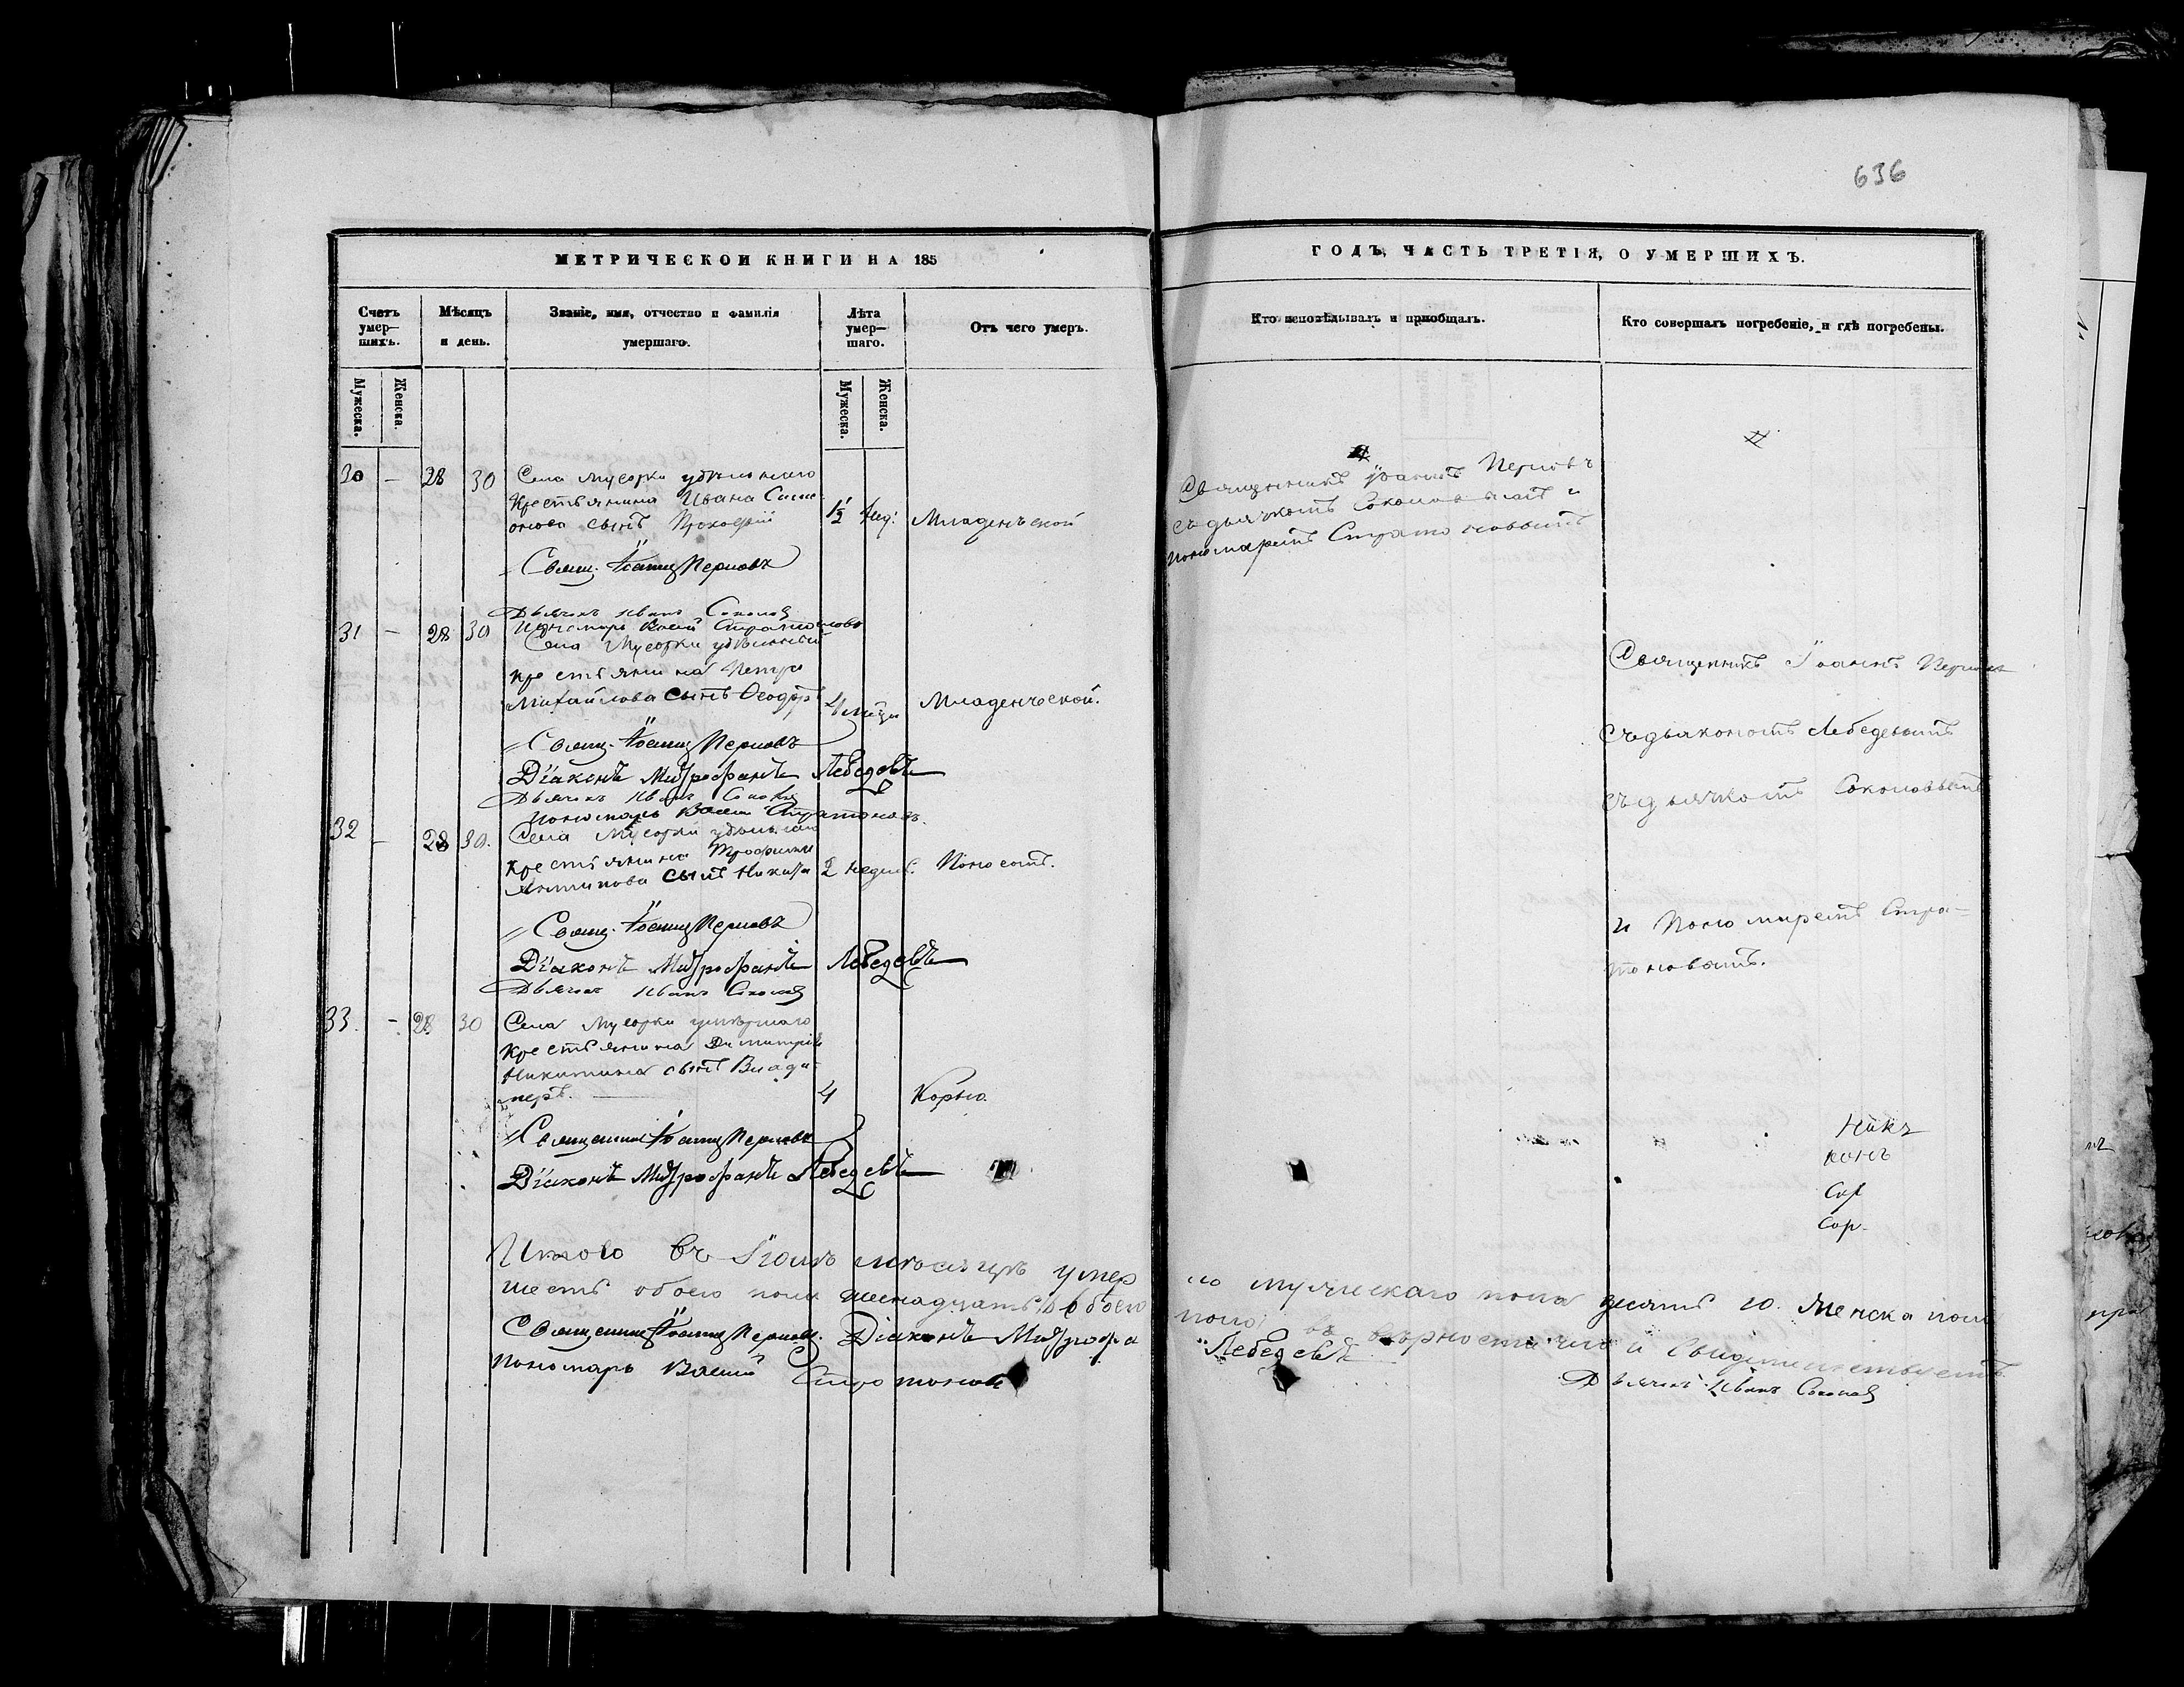 636
МЕТРИЧЕСКОЙ КНИГИ НА 185
ГОДЪ, ЧАСТЬ ТРЕТІЯ, О УМЕРШИХЪ.
Счетъ умер-
шихъ.
Мѣсяцъ
и день.
Званіе, имя, отчество и фамилія
умершаго.
Лѣта
умер-
шаго.
Отъ чего умеръ.
Кто исповѣдывалъ и пріобщалъ.
Кто совершалъ погребеніе, и гдѣ погребены.
Мужеска.
Женска.
Мужеска.
Женска.
30 — 28 30 Села Мусорки удѣльнаго
крестьянина Ивана Симе-
онова сынъ Прокофій 1½ нед. Младенческой
Свящ. Іоаннъ Перловъ
Дьячекъ Иванъ Соколов
Пономарь Васил Стратоновъ
31 — 28 30 Села Мусорки удѣльнаго
крестьянина Петра
Михайлова сынъ Ѳеодоръ 4 мѣся Младенческой.
Свящ. Іоаннъ Перловъ
Діаконъ Митрофанъ Лебедевъ
Дьячекъ Иванъ Соколов
Пономарь Васил Стратоновъ.
32 — 28 30. Села Мусорки удѣльнаго
крестьянина Трофима
Антипова сынъ Никита 2 недѣл. Поносомъ.
Свящ. Іоаннъ Перловъ
Діаконъ Митрофанъ Лебедевъ
Дьячекъ Иванъ Соколов
33. — 28. 30 Села Мусорки
крестьянина Димитрія
Никитина сынъ Влади-
меръ. 4 Корью.
Священникъ Іоаннъ Перловъ
Діаконъ Митрофанъ Лебедевъ
Священникъ Іоаннъ Перловъ
съ дьячкомъ Соколовымъ и
пономаремъ Стратоновымъ
Священникъ Іоаннъ Перловъ
съ дьякономъ Лебедевымъ
съ дьячкомъ Соколовымъ
и Пономаремъ Стра-
тоновымъ.
Сор.
Итого въ Іюлѣ мѣсяцѣ умер
ло мужескаго пола десять 10. женска пола
шесть обоего пола шеснадцать 16 обоего
пола въ вѣрности чего и свидѣтельствуемъ
Священникъ Іоаннъ Перловъ. Діаконъ Митрофа
Лебедевъ
Пономарь Васил Стратонов
Дьячекъ Иванъ Соколов